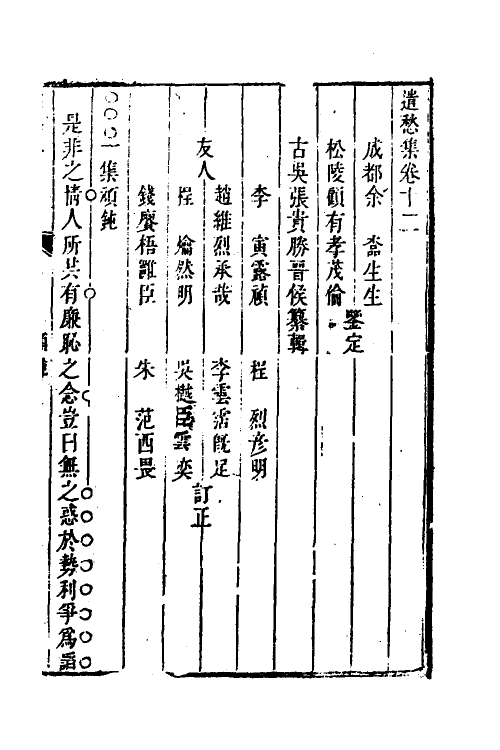 遣愁集卷十二
成都余　楍生生
松陵顧有孝茂倫
鑒定
古吳張貴勝晉侯纂輯
李　寅露禎
程　烈彦明
友人
趙維烈承哉
李雲霑既足
程　爚然明
吳樾臣雲奕
訂正
錢廮梧雛臣
朱　范西畏
一集頑鈍
是非之情人所共有廉恥之念豈曰無之惑於勢利爭爲謟